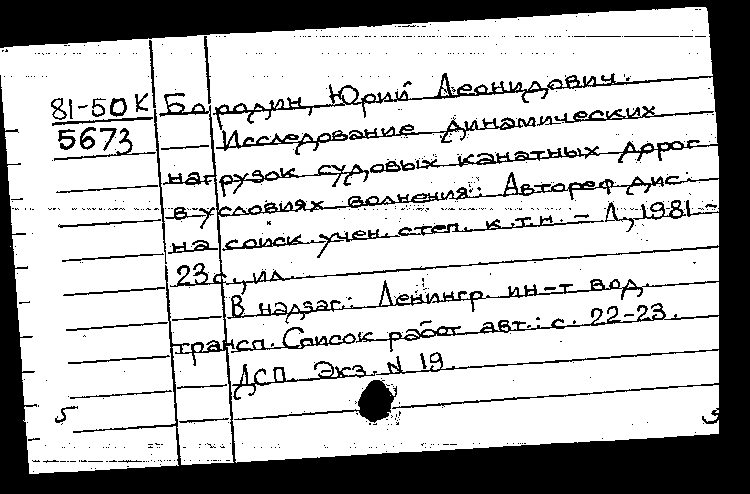 81-50К Бородин, Юрий Леонидович.
5673 Исследование динамических
нагрузок судовых канатных дорог
в условиях волнения: Автореф дис.
на соиск. учен. степ. к.т.н. – Л., 1981 –
23 с., ил.
В надзаг.: Ленингр. ин-т вод.
трансп. Список работ авт.: с. 22-23.
ДСП. Экз. N 19.
5